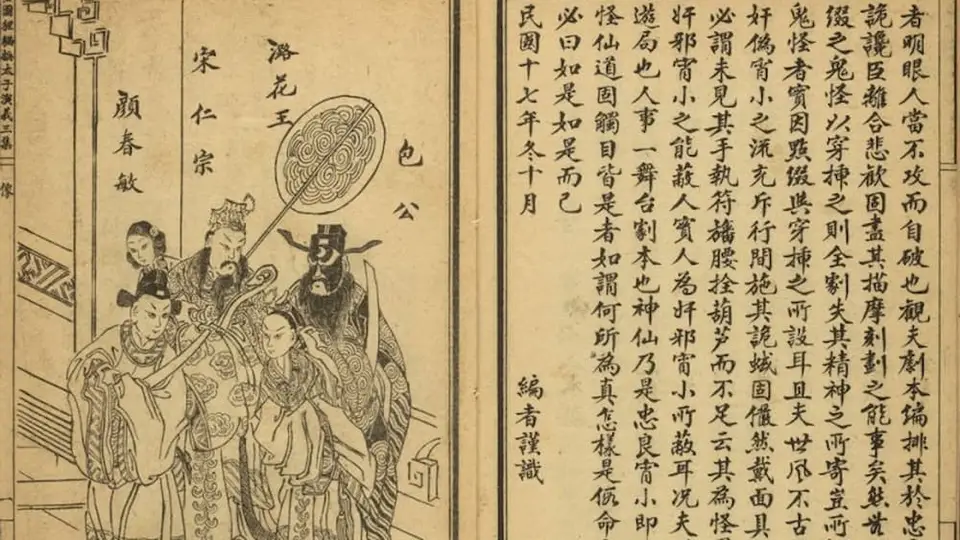 者明眼人當不攻而自破也觀夫劇本編排其於忠
詭讒臣離合悲歡固盡其描摩刻劃之能事矣然
綴之鬼怪以穿揷之則全劇失其精神之所寄豈所
鬼怪者實因點綴與穿揷之所設耳且夫世風不古
奸僞宵小之流充斥行間施其詭蜮固儼然戴面具
必謂未見其手執符旛腰拴葫芦而不足云其為怪
奸邪宵小之能蔽人實人為奸邪宵小所蔽耳況夫
遊局也人事一舞台劇本也神仙乃是忠良宵小即
怪仙道固觸目皆是者如謂何所為真怎樣是假命
必曰如是如是而已
民國十七年冬十月 編者謹識
包公
潞花王
宋仁宗
顏春敏
換太子演義三集 像